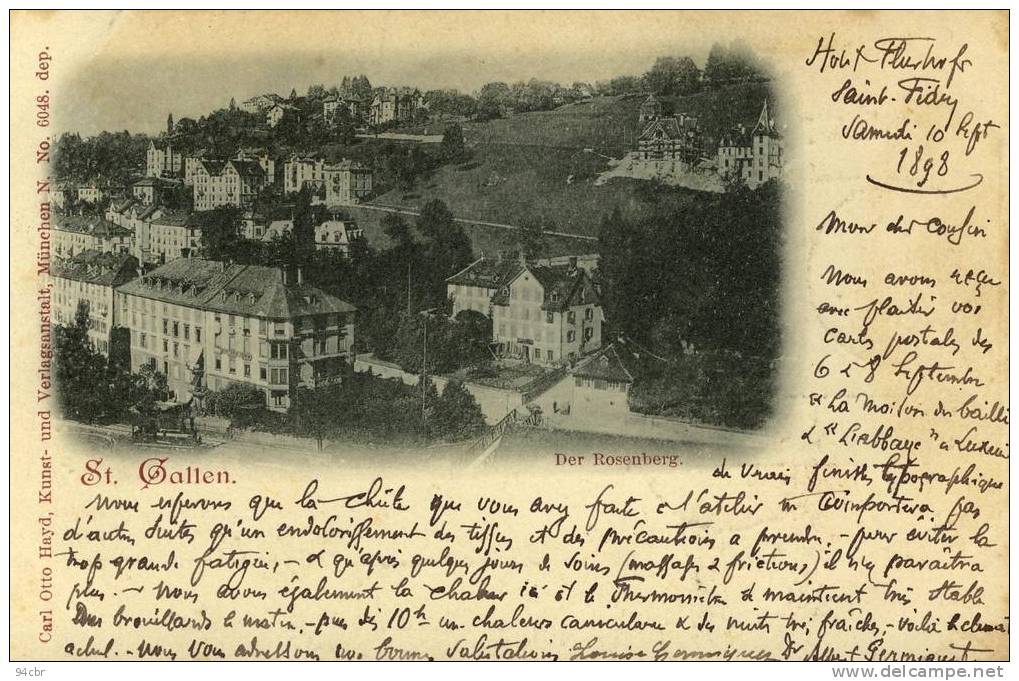 Carl Otto Hayd, Kunst- und Verlagsanstalt, München N No. 6048. dep.
Saint-Fiden
Samedi 10 Sept
1898
Mon cher Cousin
Nous avons reçu
avec plaisir vos
cartes postales des
6 & 8 Septembre
"La Maison du bailli"
& "L'abbaye" à Luxeuil
de vraies finesses typographiques
St. Gallen.
Der Rosenberg.
Nous espérons que la chûte que vous avez faite à l'atelier n'emportera pas
d'autres suites qu'un endolorissement des tissus et des précautions à prendre, - pour éviter la
trop grande fatigue, - & qu'après quelques jours de soins (massages & frictions,) il n'y paraîtra
plus. - Nous avons également la chaleur ici et le Thermomètre se maintient très stable
Des brouillards le matin, - puis dès 10h une chaleur caniculaire & des nuits très fraîches, - voilà le climat
actuel. - Nous vous adressons nos bonnes salutations Louise Germiquet Dr Albert Germiquet.
94cbr
www.delcampe.net